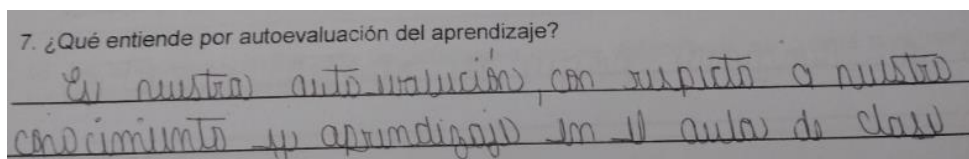 7. ¿Qué entiende por autoevaluación del aprendizaje?
Es nuestra auto evalución, con respecto a nuestro
conocimiento y aprendizaje en el aula de clase